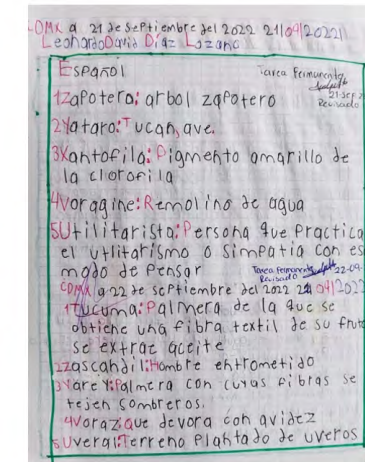 CDMX a 21 de Septiembre del 2022 21/09/2022
Leonardo David Díaz Lozano
Español
Tarea Permanente
21-Sep
Revisado
1Zapotero: arbol zapotero
2Yataro: Tucan, ave.
3Xantofila: Pigmento amarillo de
la clorofila
4Voragine: Remolino de agua
5Utilitarista: Persona que Practica
el utlitarismo o simpatia con es
modo de pensar
Tarea Permanente 22-09-
Revisado
CDMX a 22 de septiembre del 2022 22/09/2022
1Tucuma: Palmera de la que se
obtiene una fibra textil de su frut
se extrae aceite
2Zascandil: Hombre entrometido
3Yarey: Palmera con cuyas fibras se
tejen sombreros.
4Voraz: que devora con avidez
5Uveral: Terreno Plantado de uveros